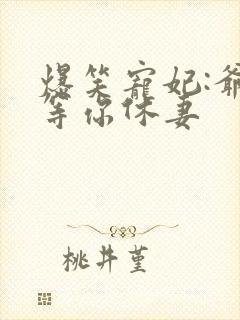 爆笑寵妃:爺
等你休妻
桃井堇